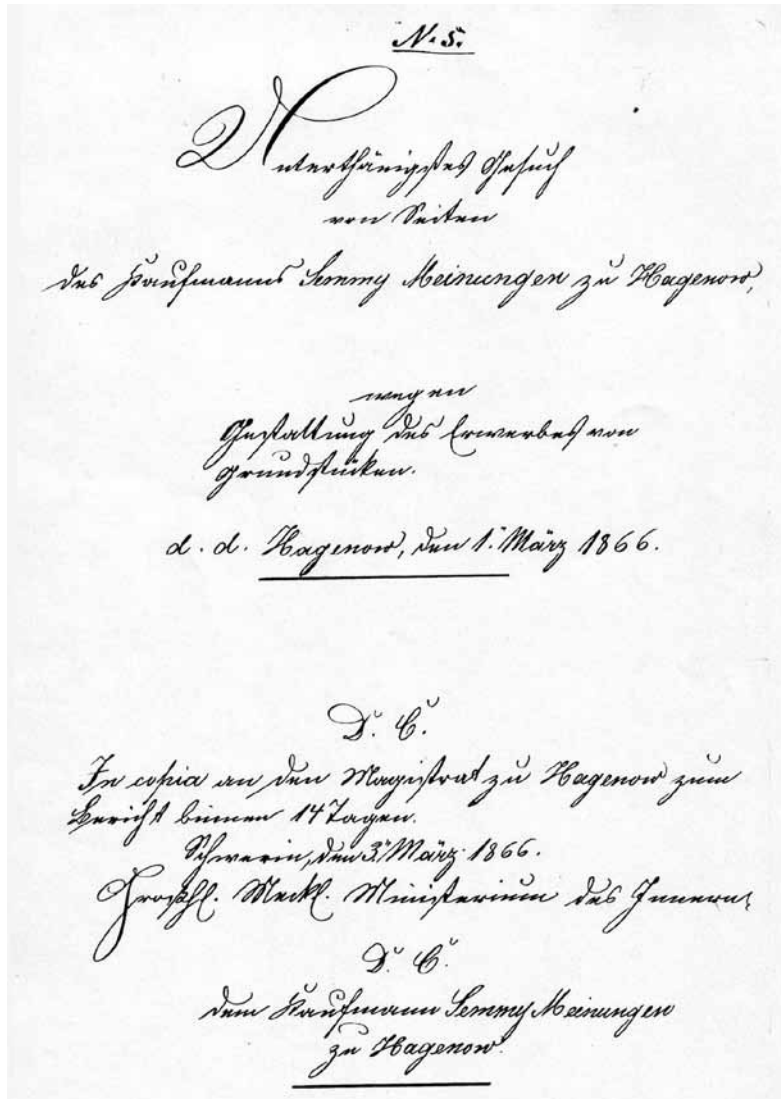 N. 5.
Unterthänigstes Gesuch
von Seiten
des Kaufmanns Semmy Meinungen zu Hagenow,
wegen
Gestattung des Erwerbes von
Grundstücken.
d. d. Hagenow, den 1. März 1866.
D. C.
In copia an den Magistrat zu Hagenow zum
Bericht binnen 14 Tagen.
Schwerin, den 3. März 1866.
Großhl. Meckl. Ministerium des Innern.
D. C.
dem Kaufmann Semmy Meinungen
zu Hagenow.